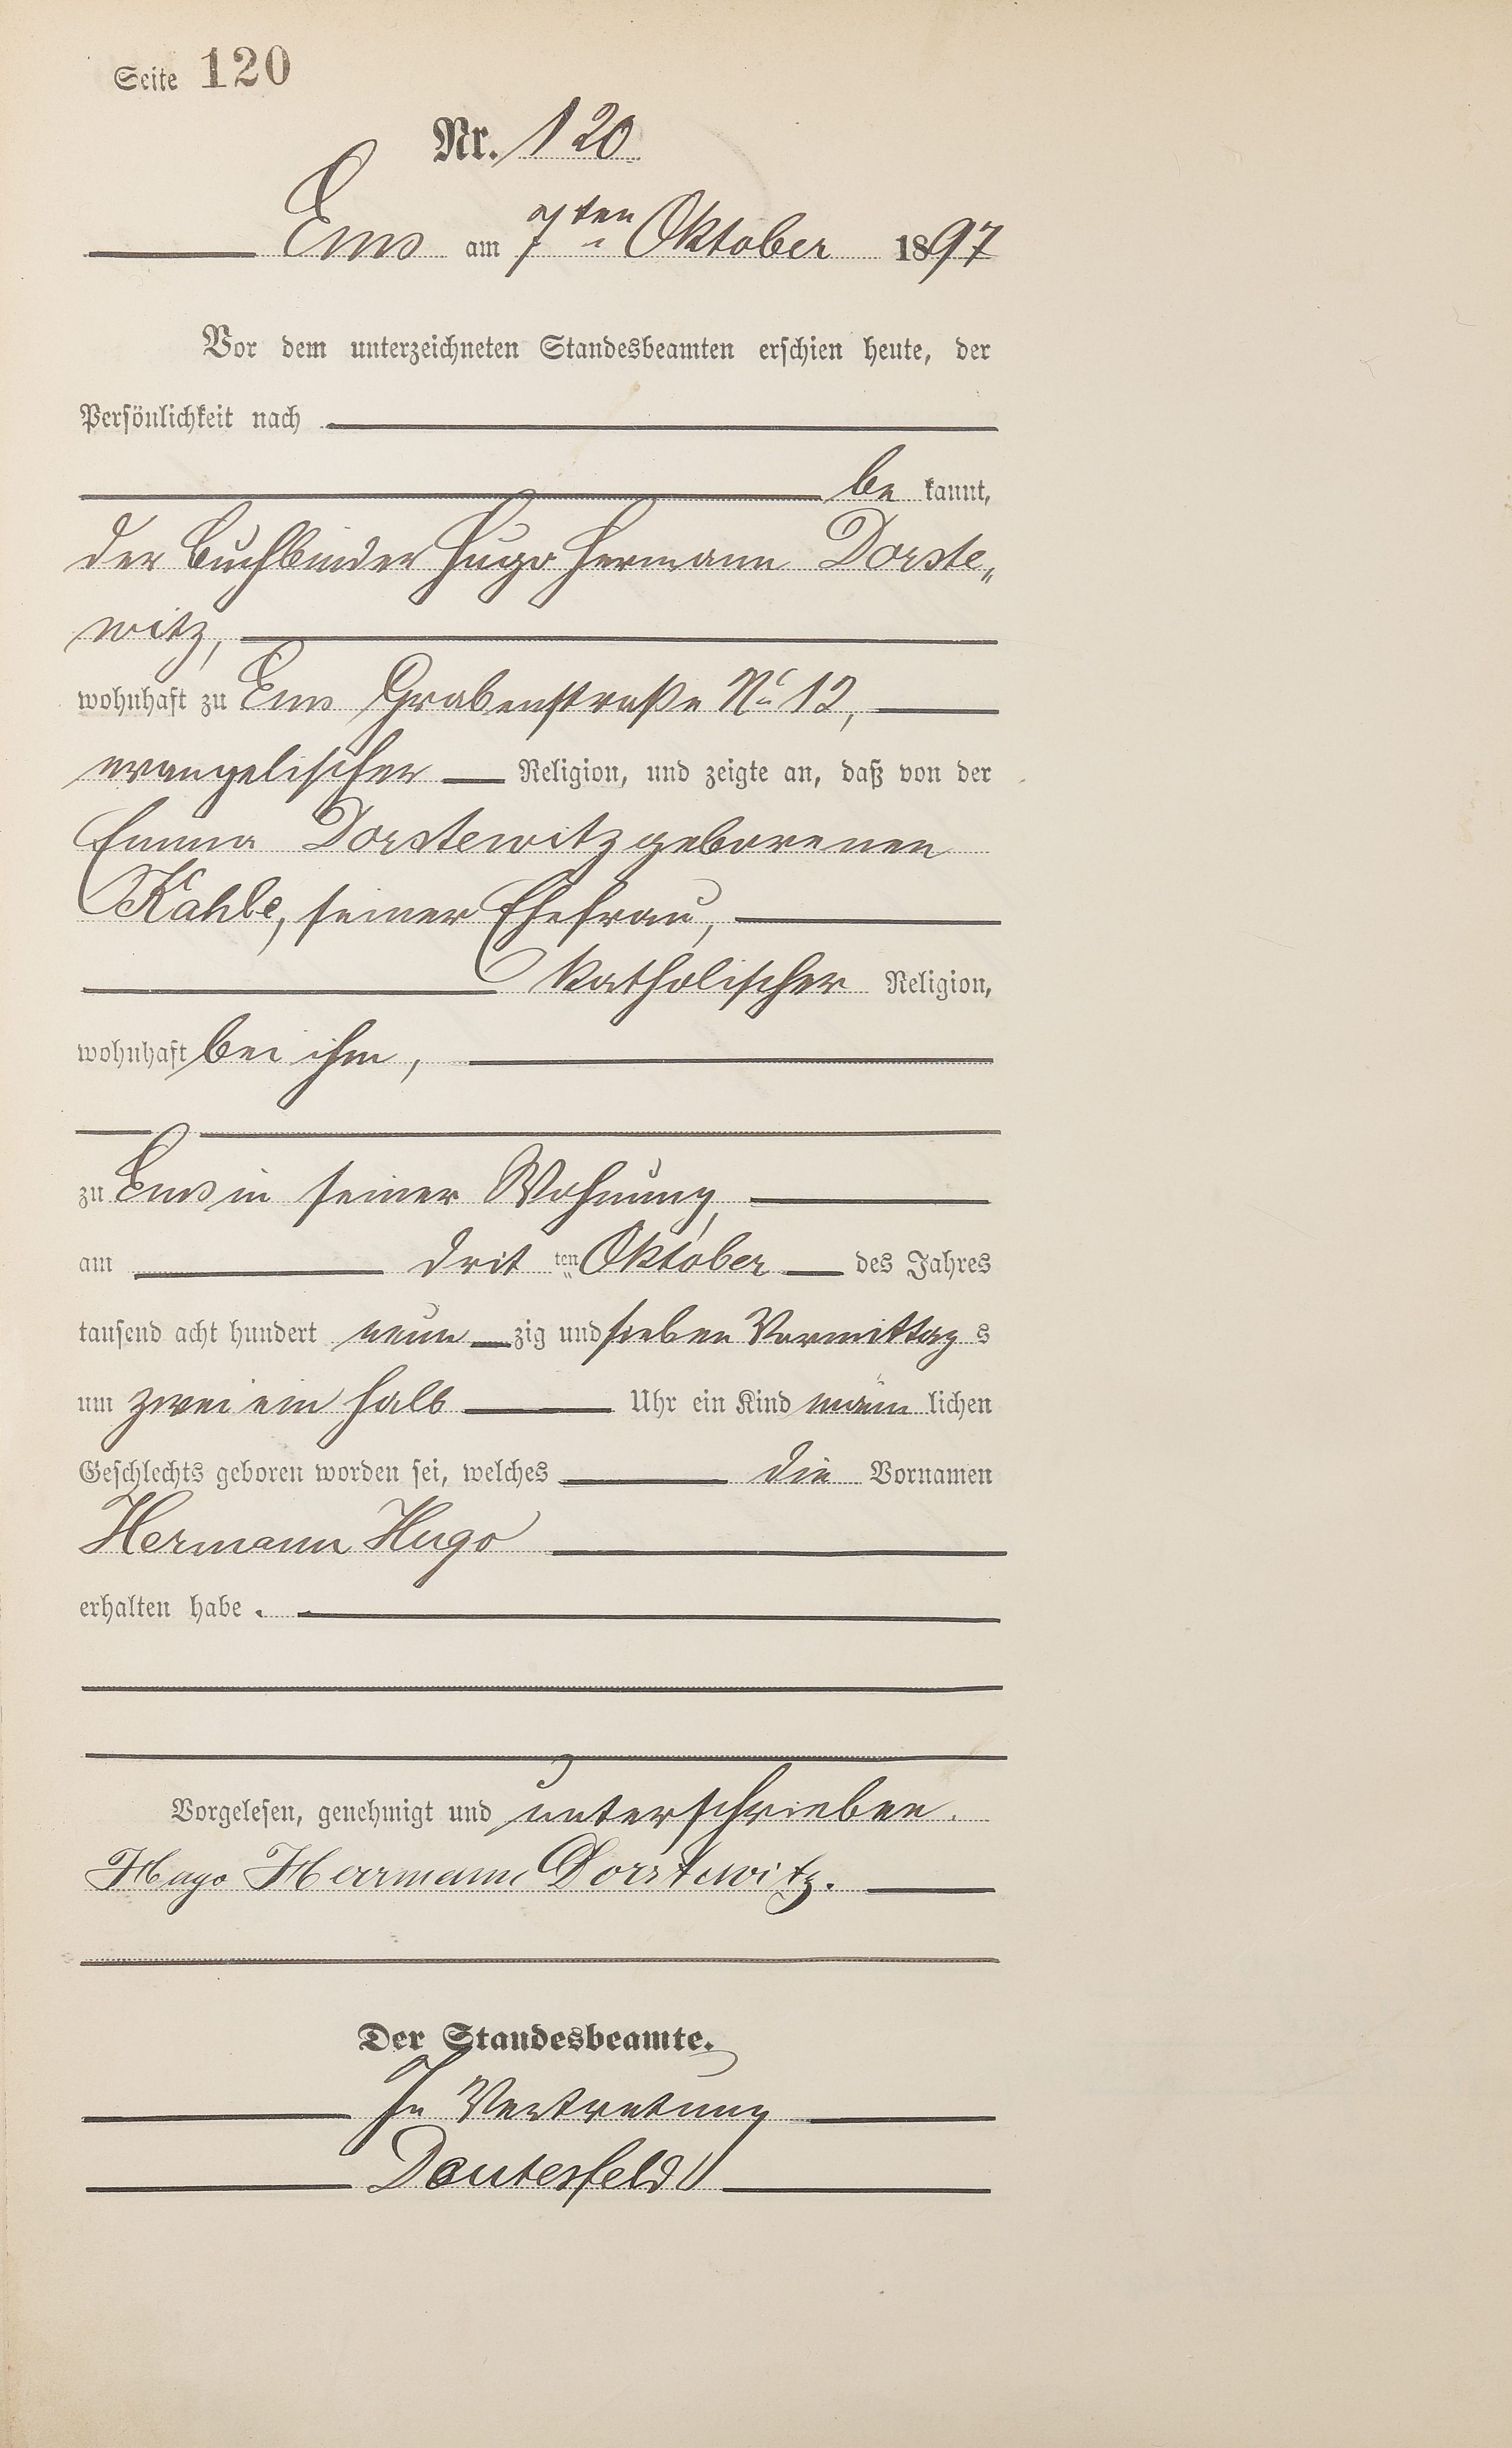 Seite 120
Nr. 120
Ems am 7ten Oktober 1897
Vor dem unterzeichneten Standesbeamten erschien heute, der
Persönlichkeit nach
be kannt,
der Buchbinder Hugo Hermann Dorste„
witz,
wohnhaft zu Ems Grabenstraße No 12,
evangelischer Religion, und zeigte an, daß von der
Emma Dorstewitz geborenen
Kahle, seiner Ehefrau,
katholischer Religion,
wohnhaft bei ihm,
zu Ems in seiner Wohnung,
am drit ten Oktober des Jahres
tausend acht hundert neun zig und sieben Vormittag s
um zwei ein halb Uhr ein Kind männ lichen
Geschlechts geboren worden sei, welches die Vornamen
Hermann Hugo
erhalten habe.
Vorgelesen, genehmigt und unterschrieben.
Hugo Herrmann Dorstewitz.
Der Standesbeamte.
In Vertretung